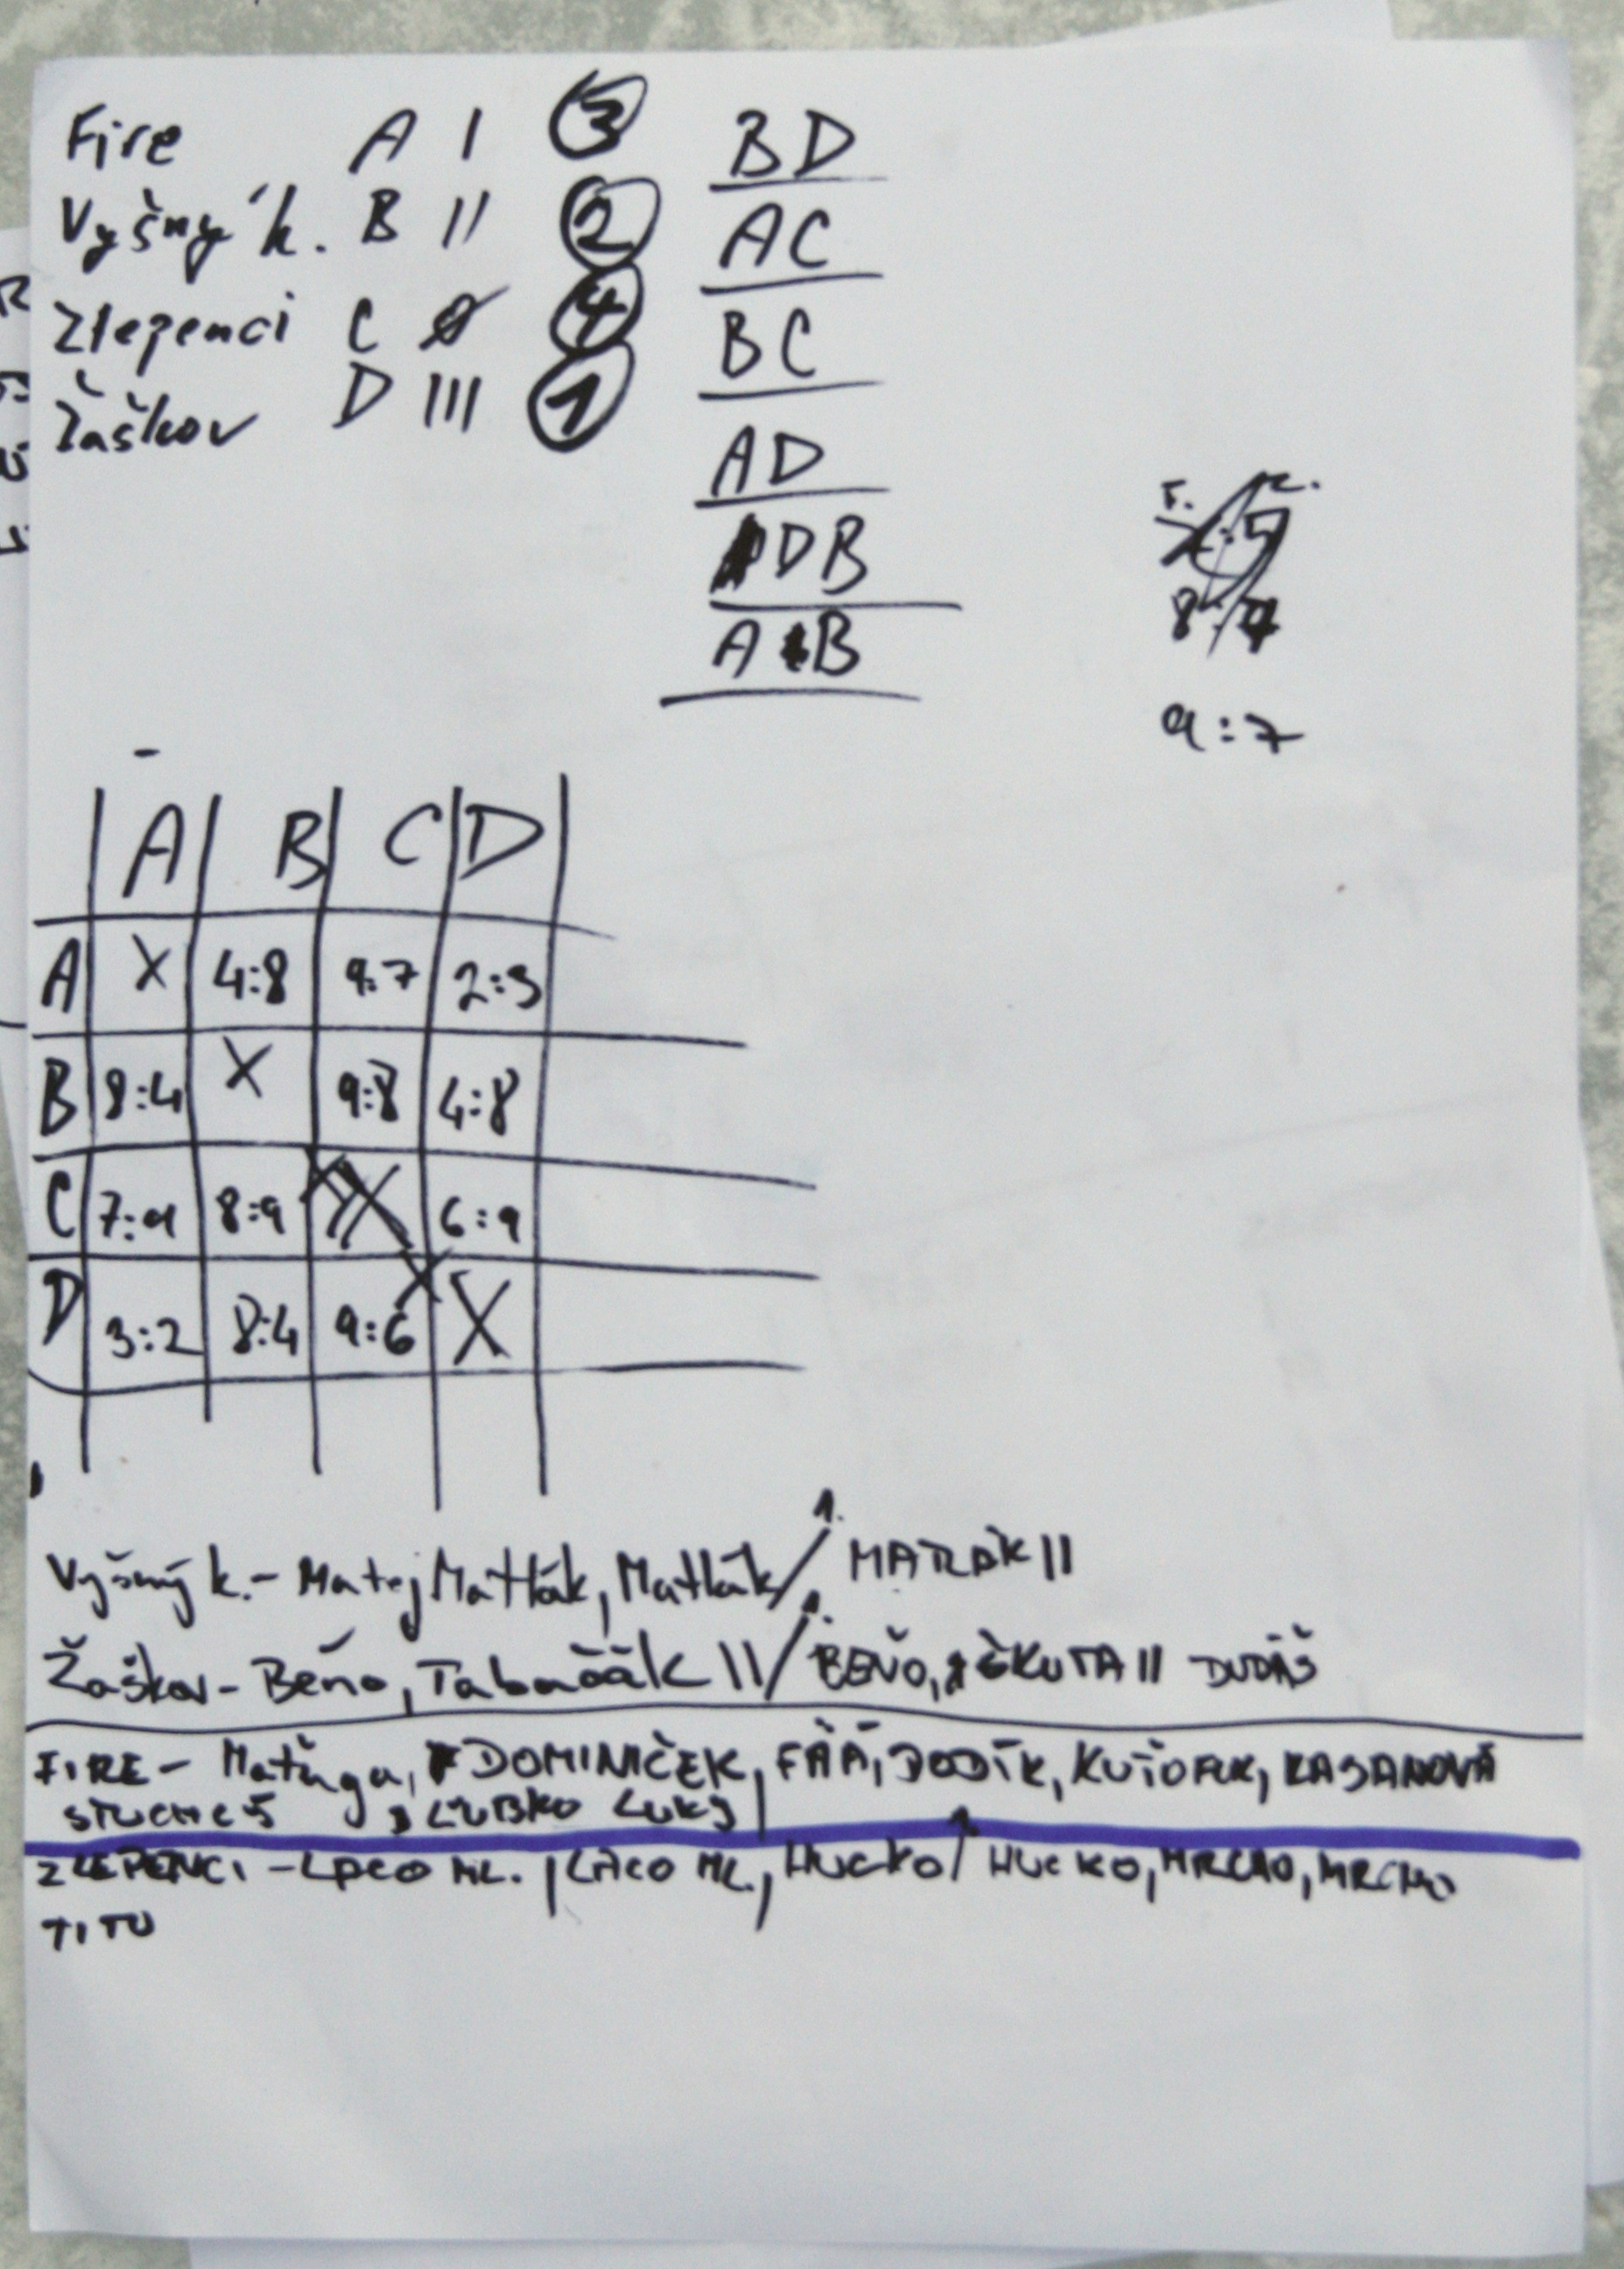 Fire A I 3
Vyšný k. B II 2
Zlepenci C 0 4
Žaškov D III 1
BD
AC
BC
AD
DB
A B
8:
9:7
A B C D
A X 4:8 9:7 2:3
B 8:4 X 9:8 4:8
C 7:9 8:9 X 6:9
D 3:2 8:4 9:6 X
Vyšný k. - Matej Matlák, Matlák / 1. MATLÁK II
Žaškov - Beňo, Tabačák II / 1. BEŇO, ŠKUTA II DUDÁŠ
FIRE - Matúga, DOMINIČEK, FÁÁ, JODÍK, KASANOVÁ
ĽUBKO LUKJ
ZLEPENCI - LACO ML., LACO ML., HUCKO / HUCKO, MRCHO, MRCHO
TITO